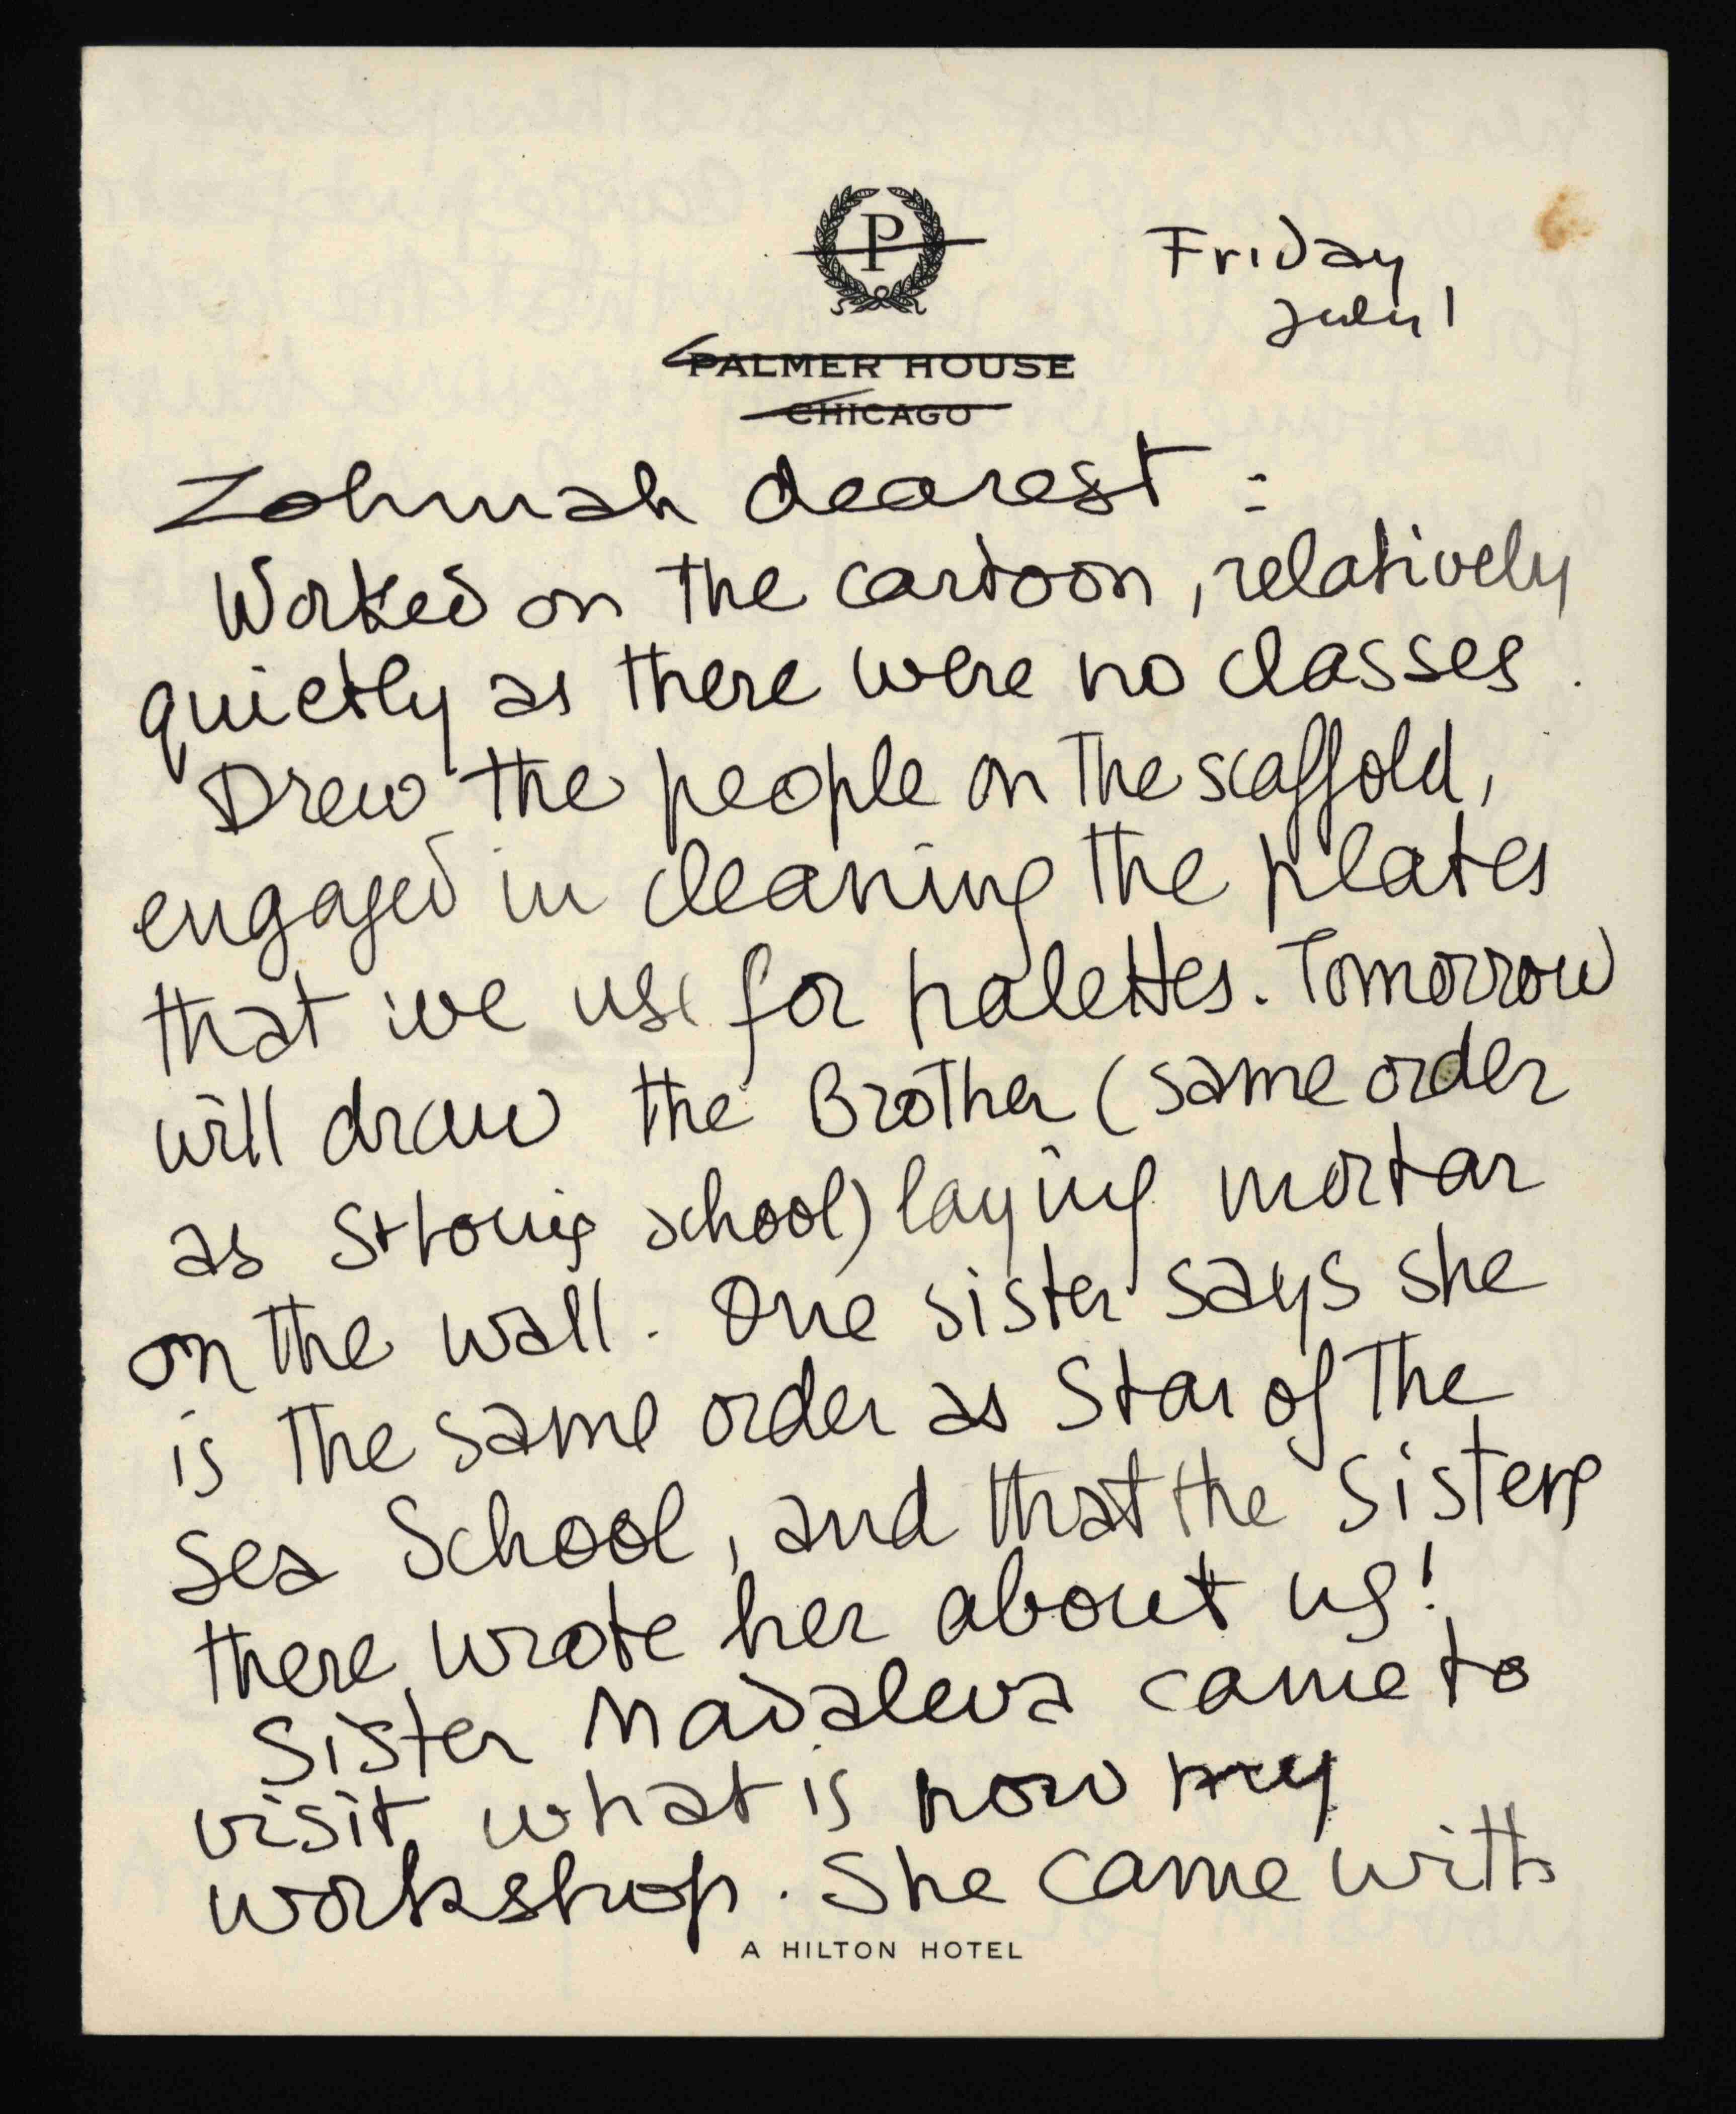 P
Friday
July 1
PALMER HOUSE
CHICAGO
Zohmah dearest :
Worked on the cartoon, relatively
quietly as there were no classes.
Drew the people on the scaffold,
engaged in cleaning the plates
that we use for palettes. Tomorrow
will draw the Brother (same order
as St Louis school) laying mortar
on the wall. One sister says she
is the same order as Star of the
Sea School, and that the sisters
there wrote her about us!
Sister Madaleva came to
visit what is now my
workshop. She came with
A HILTON HOTEL